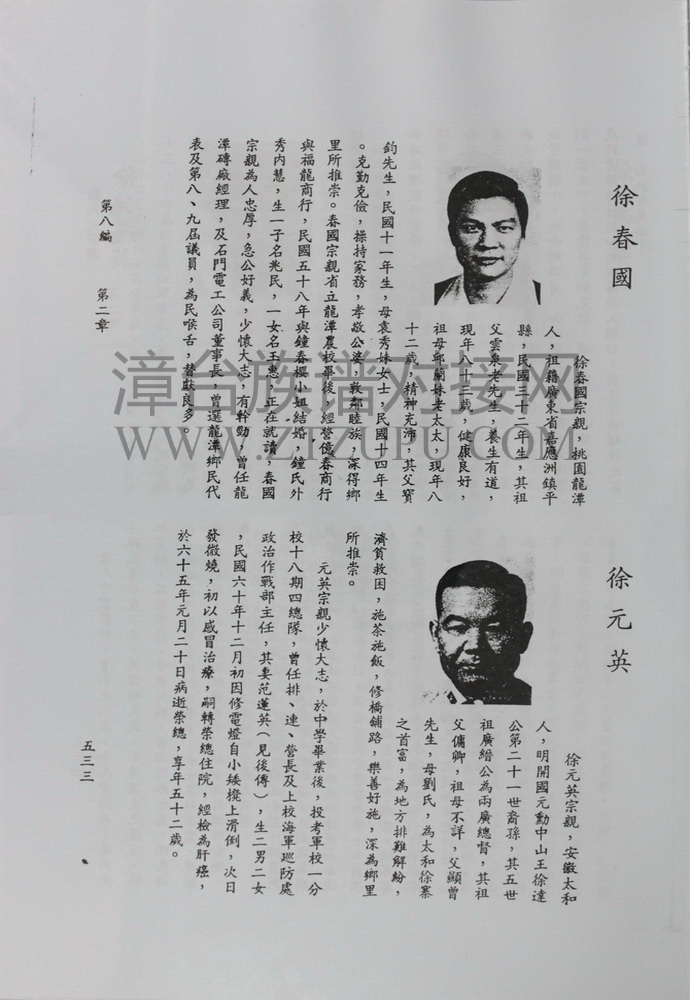 徐春國
徐春國宗親，桃園龍潭
人，祖籍廣東省嘉應洲鎮平
縣，民國三十二年生，其祖
父雲泉老先生，養生有道，
現年八十三歲，健康良好，
祖母鄧蘭妹老太太，現年八
十二歲，精神充沛，其父寶
鈞先生，民國十一年生，母袁秀妹女士，民國十四年生
。克勤克儉，操持家務，孝敬公婆，敦鄰睦族，深得鄉
里所推崇。春國宗親省立龍潭農校畢後，經營億春商行
與福龍商行，民國五十八年與鐘春櫻小姐結婚，鐘氏外
秀內慧，生一子名兆民，一女名玉惠，正在就讀，春國
宗親為人忠厚，急公好義，少懷大志，有幹勁，曾任龍
潭磚廠經理，及石門電工公司董事長，曾選龍潭鄉民代
表及第八、九屆議員，為民喉舌，替獻良多。
徐元英
徐元英宗親，安徽太和
人，明開國元勳中山王徐達
公第二十一世裔孫，其五世
祖廣縉公為兩廣總督，其祖
父傭卿，祖母不詳，父顯曾
先生，母劉氏，為太和徐寨
之首富，為地方排難解紛，
濟貧救困，施茶施飯，修橋鋪路，樂善好施，深為鄉里
所推崇。
元英宗親少懷大志，於中學畢業後，投考軍校一分
校十八期四總隊，曾任排、連、營長及上校海軍巡防處
政治作戰部主任，其妻范蓮英（見後傳），生二男二女
，民國六十年十二月初因修電燈自小矮櫈上滑倒，次日
發微燒，初以感冒治療，嗣轉榮總住院，經檢為肝癌，
於六十五年元月二十日病逝榮總，享年五十二歲。
第八編　第二章
五三三
漳台族谱对接网
WWW.ZTZUPU.COM